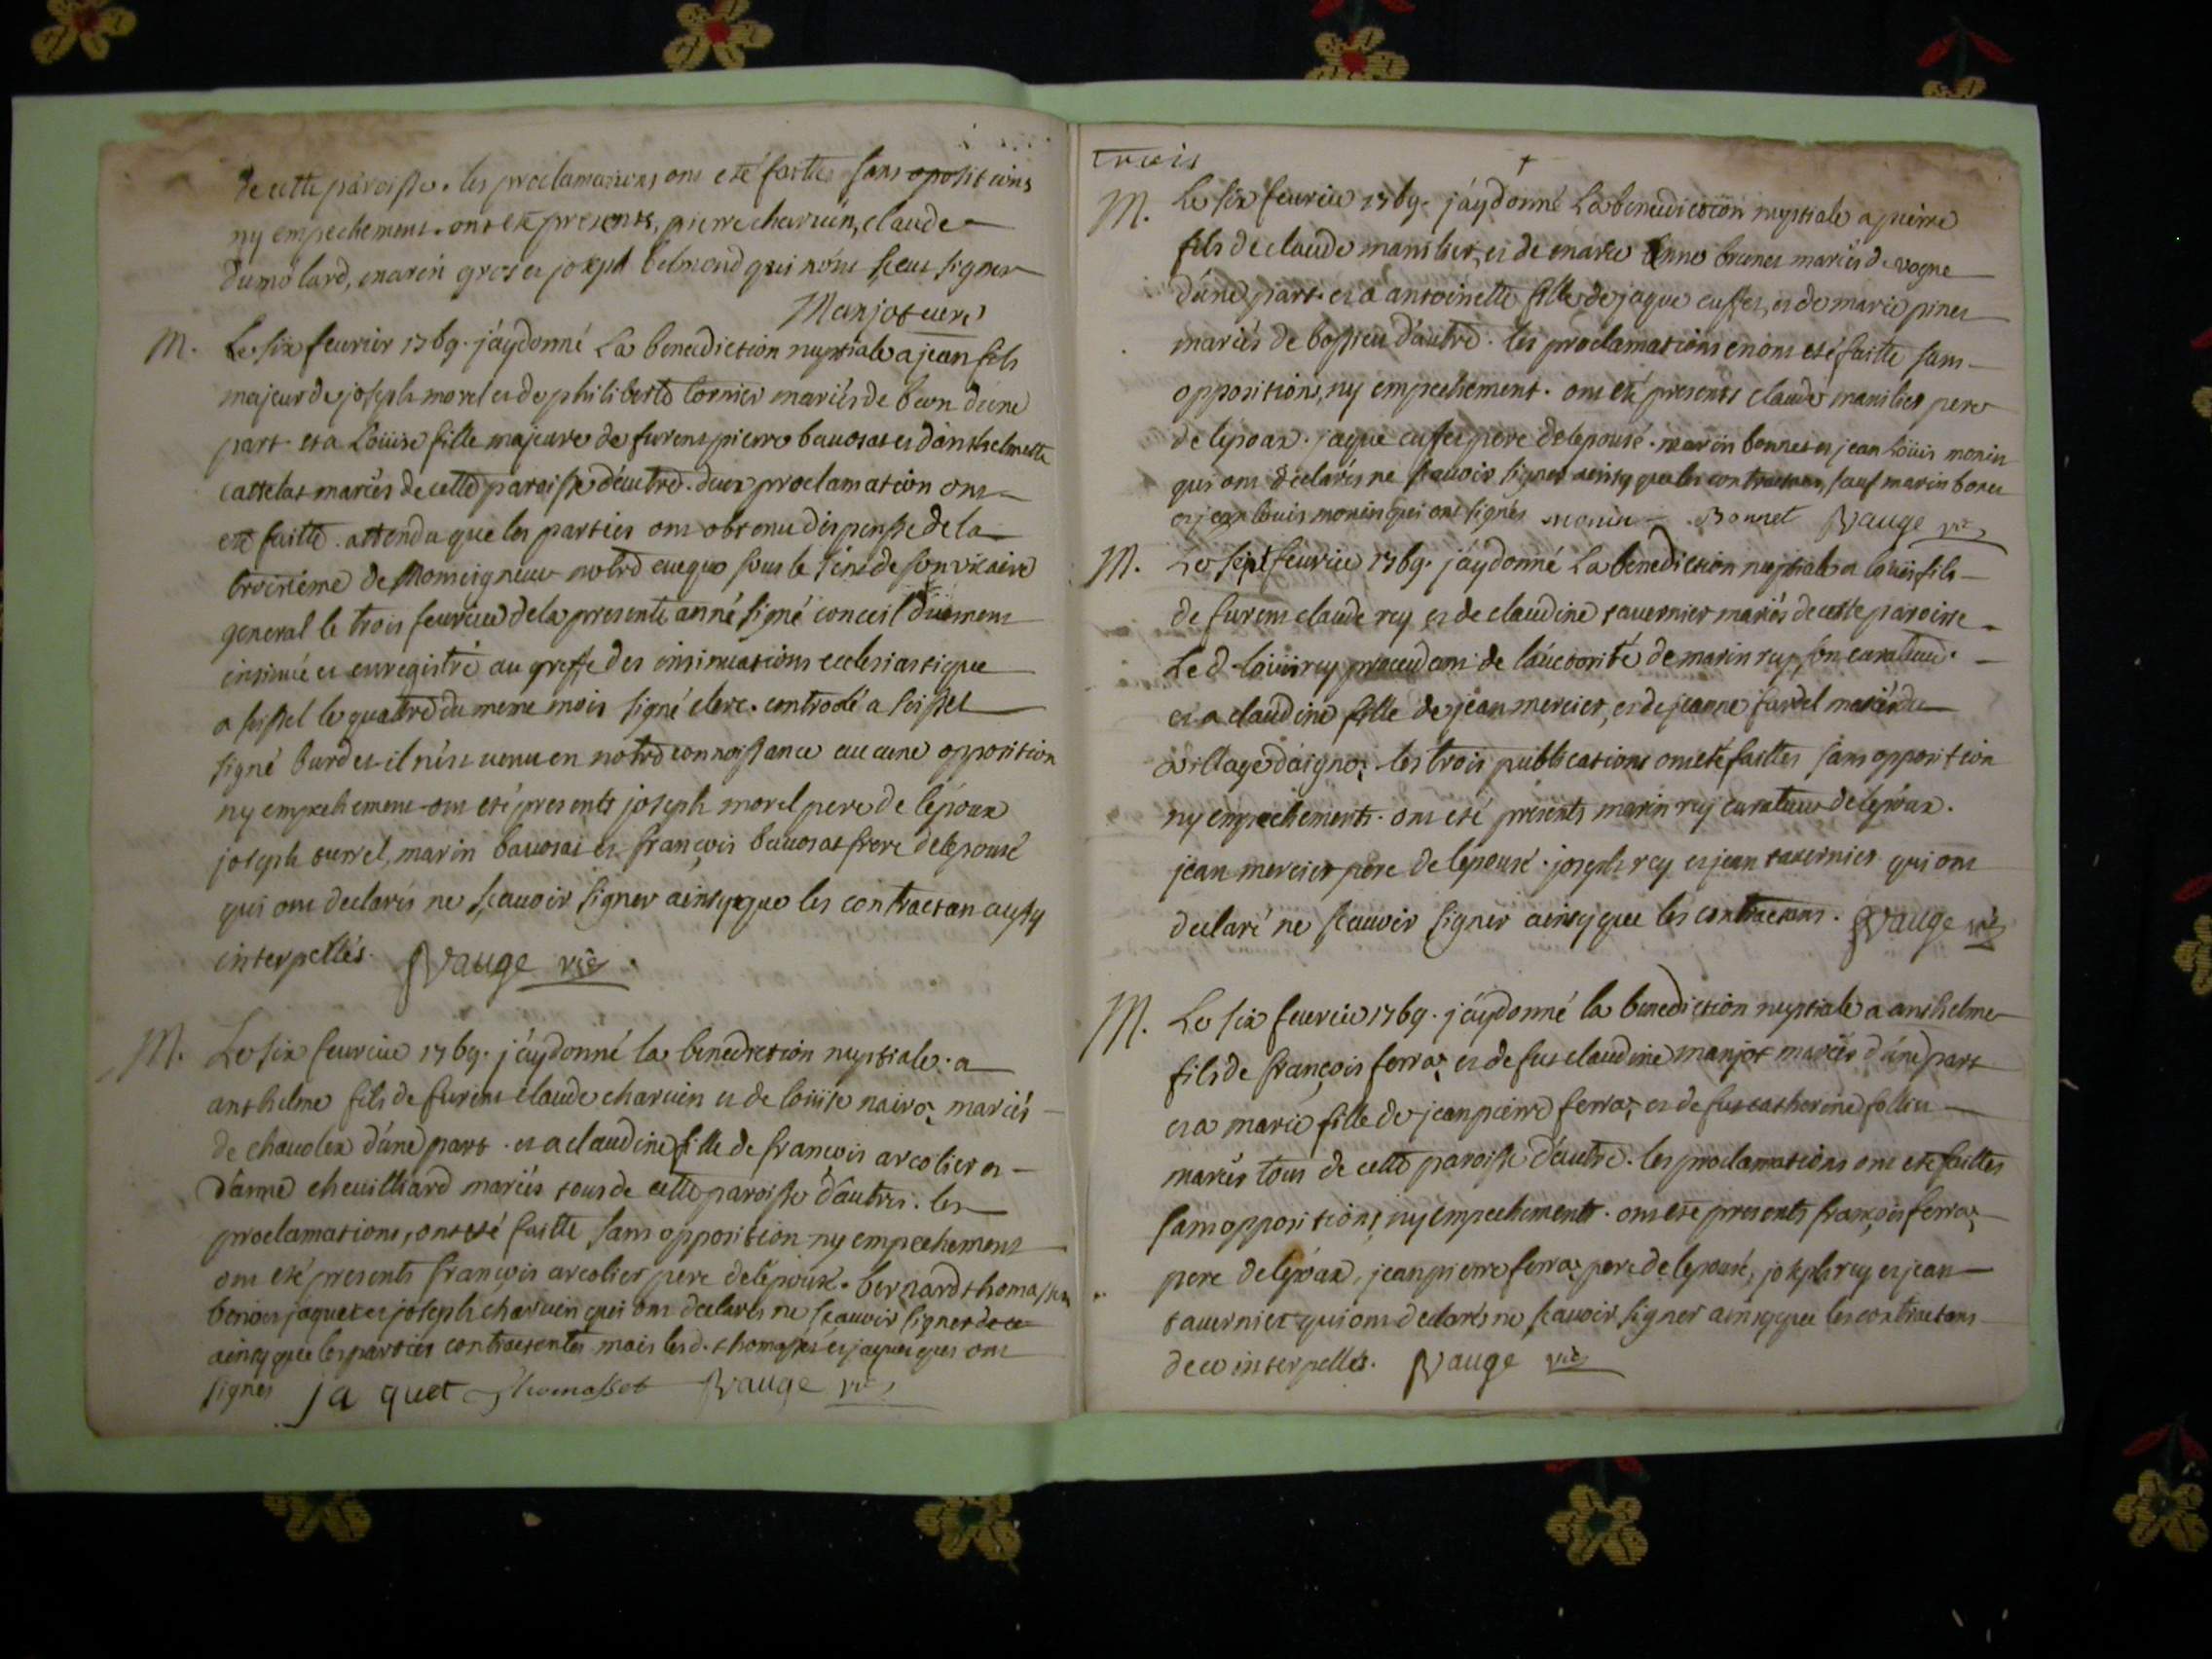 de cette paroisse. les proclamations ont eté faites sans opositions
ny empechement. ont eté presents, pierre charvin, claude
dumolard, marin gros et joseph belmond qui n'ont sceus signer
Manjot curé
M. Le six fevrier 1769. j'ay donné La benediction nuptiale a jean fils
majeur de joseph morel et de philiberte Cornier mariés de beon d'une
part et a Loüise fille majeure de furent pierre bavosat et d'anthelmette
cattelat mariés de cette paroisse d'autre. deux proclamation ont
eté faitte. attendu que les parties ont obtenu dispensse de la
troisieme de Monseigneur notre eveque sous le sein de son vicaire
general le trois fevrier de la presente anné signé conceil düement
insinué et enregistré au greffe des insinuations ecclesiastique
a seissel le quatre du meme mois signé clerc. controlé a seissel
signé burdet il n'est venu en notre connoissance aucune opposition
ny empechement ont eté presents joseph morel pere de l'epoux
joseph surrel, marin bavosat et françois bavosat frere de l'epouse
qui ont declarés ne scauoir signer ainsy que les contractan aussy
interpellés. Vauge vic
M. Le six fevrier 1769. j'ay donné la benediction nuptiale. a
anthelme fils de furent claude charvin et de loüise mariés
de chavolex d'une part. et a claudine fille de francois arcolier et
d'anne chevilliard mariés tous de cette paroisse d'autres. les
proclamations, ont eté faitte sans opposition ny empechement
ont eté presents françois arcolier pere de l'epouse. bernard thomasset
benoit jaquet et joseph charvin qui ont declarés ne scauoir signer de ce
ainsy que les parties contractentes mais les d. thomasset et jaquet qui ont
signes ja quet Thomasset Vauge vic
trois
M. Le six fevrier 1769. j'ay donné La benediction nuptiale a pierre
fils de claude manilier, et de marie Anne brunet mariés de vogne
d'une part. et a antoinette fille de jaque cusset, et de marie pinet
mariés de bossieu d'autre. les proclamations en ont eté faitte sans
oppositions, ny empechement. ont eté presents claude manilier pere
de l'epoux. jaque cusset pere de l'epouse. marin bonnet et jean Loüis monin
qui ont declarés ne scauoir signer ainsy que les contractans, sauf marin bonet
et jean louis monin qui ont signés monin Bonnet Vauge vic
M. Le sept fevrier 1769. j'ay donné La benediction nuptiale a loüis fils
de furent claude rey et de claudine tavernier mariés de cette paroisse
Le d. loüis rey procedant de l'auctorité de marin rey son curateur.
et a claudine fille de jean mercier, et de jeanne fardel mariés du
village d'aignoz. les trois publications ont eté faittes sans opposition
ny empechements. ont eté présents marin rey curateur de l'epoux.
jean mercier pere de l'epouse. joseph rey et jean tavernier qui ont
declaré ne scauoir signer ainsy que les contractans. Vauge vic
M. Le six fevrier 1769. j'ay donné la benediction nuptiale a anthelme
fils de françois ferraz et de fue claudine manjot mariés d'une part
et a marie fille de jean pierre ferraz et de fue catherine follin
mariés tous de cette paroisse d'autre. les proclamations ont eté faittes
sans oppositions ny empechements. ont eté presents françois ferraz
pere de l'epoux, jean pierre ferraz pere de l'epouse, joseph rey et jean
tavernier qui ont declarés ne scauoir signer ainsy que les contractans
de ce interpellés. Vauge vic